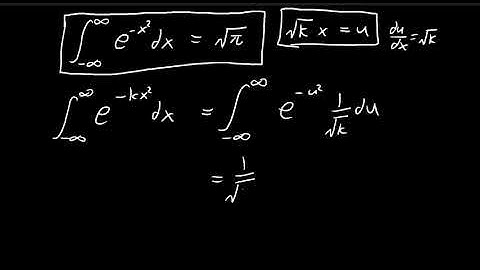 ∫_{-∞}^{∞} e^{-x²} dx = √π   √k x = u   du/dx = √k
∫_{-∞}^{∞} e^{-kx²} dx = ∫_{-∞}^{∞} e^{-u²} 1/√k du
= 1/√